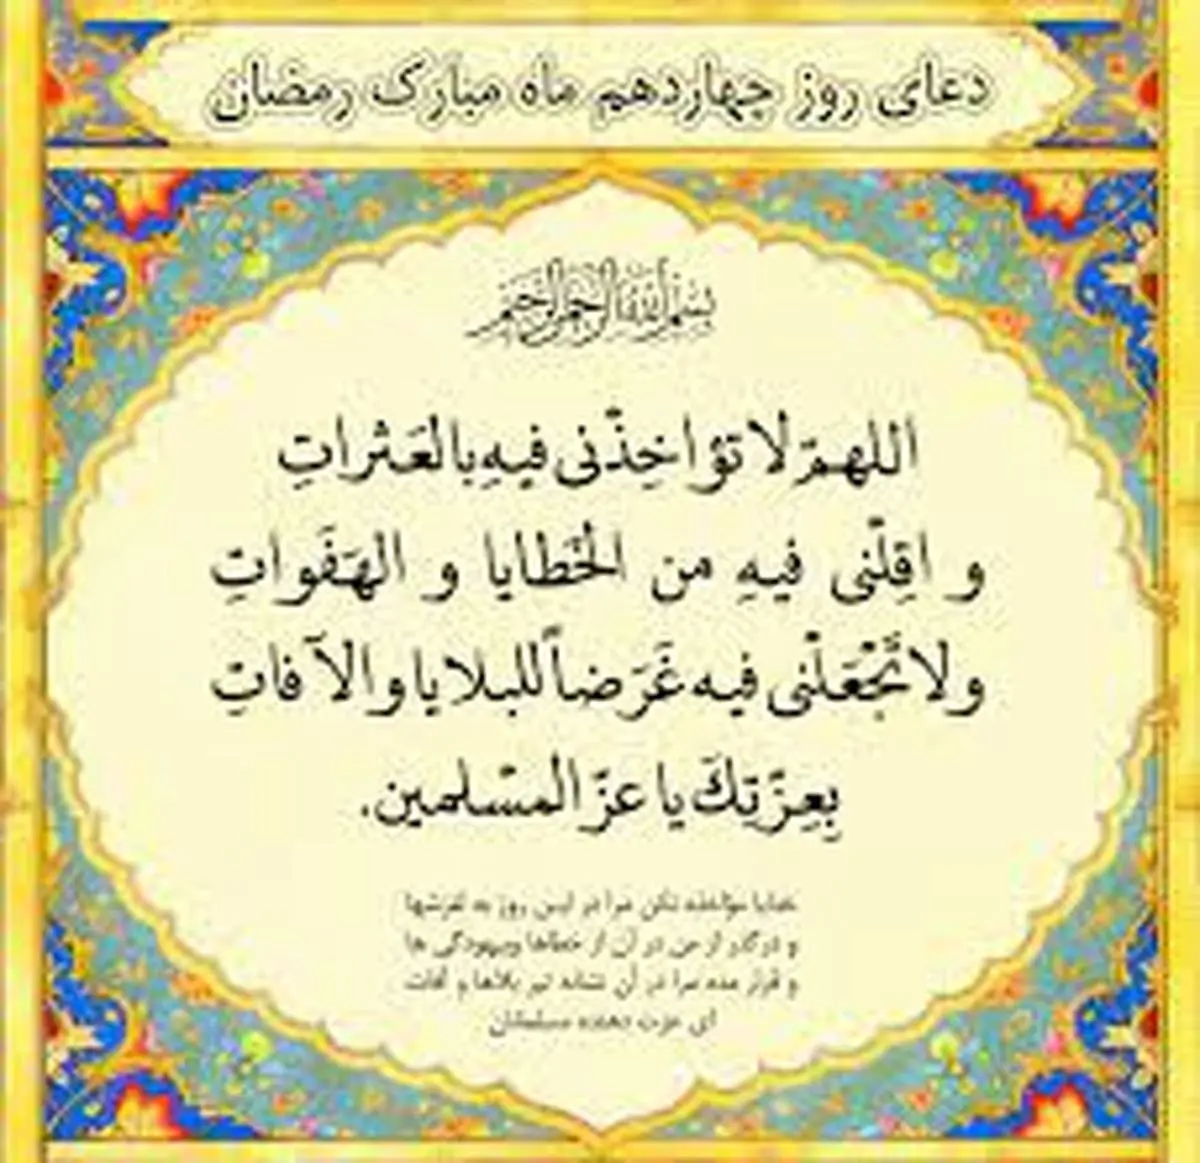 دعای روز چهاردهم ماه مبارک رمضان
بسم الله الرحمن الرحیم
اللهمّ لا تؤاخِذْنی فیهِ بالعَثراتِ
و اقِلْنی فیهِ من الخَطایا و الهَفَواتِ
ولا تَجْعَلْنی فیه غَرَضاً للبلایا والآفاتِ
بِعِزّتِكَ یا عزّ المسْلمین.
خدایا مؤاخذه نکن مرا در این روز به لغزشها
و درگذر از من در آن از خطاها وبیهودگی ها
و قرار مده مرا در آن نشانه تیر بلاها و آفات
ای عزت دهنده مسلمانان